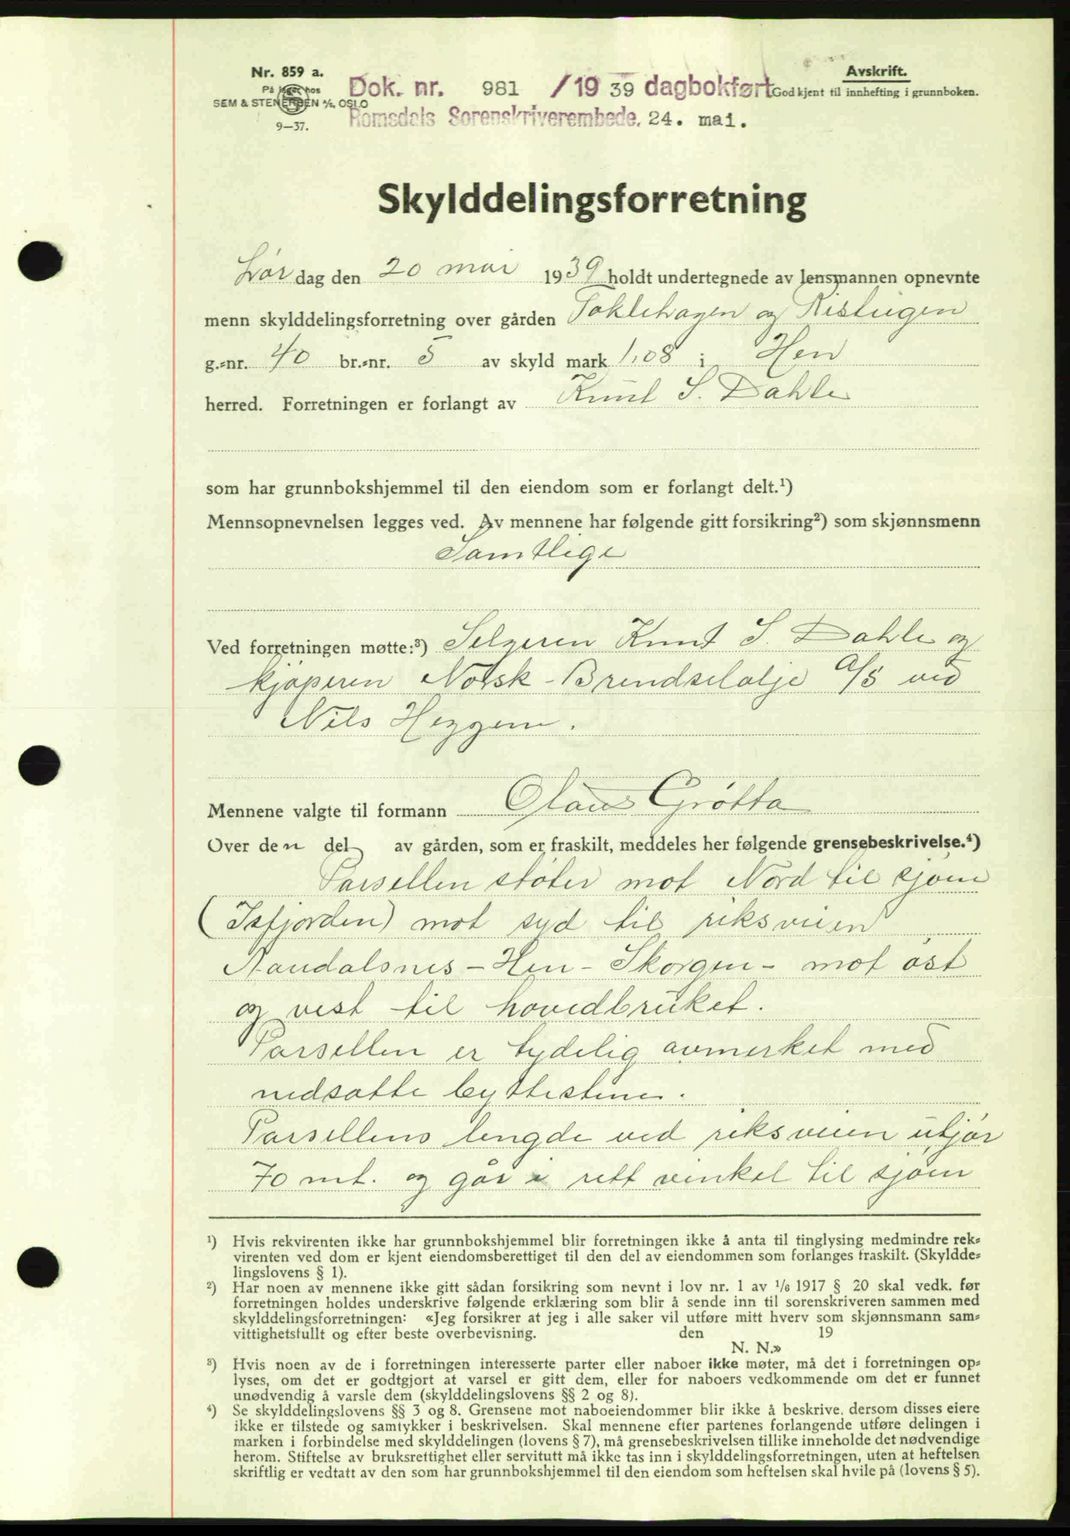 Nr. 859 a.
På lager hos
SEM & STENERSEN A/S, OSLO
9—37.
Dok. nr. 981 /1939 dagbokført
Romsdals Sorenskriverembede, 24. mai.
Avskrift.
God kjent til innhefting i grunnboken.
Skylddelingsforretning
Lør dag den 20 mai 1939 holdt undertegnede av lensmannen opnevnte
menn skylddelingsforretning over gården Toklehagen og Risteigen
g.=nr. 40 br.=nr. 5 av skyld mark 1,08 i Hen
herred. Forretningen er forlangt av Knut S. Dahle
som har grunnbokshjemmel til den eiendom som er forlangt delt.¹)
Mennsopnevnelsen legges ved. Av mennene har følgende gitt forsikring²) som skjønnsmenn
Samtlige
Ved forretningen møtte:³) Selgeren Knut S. Dahle og
kjøperen Norsk-Brendselolje A/S ved
Nils Heggem.
Mennene valgte til formann Olaus Grøtta
Over den del av gården, som er fraskilt, meddeles her følgende grensebeskrivelse.⁴)
Parsellen støter mot Nord til sjøen
(Isfjorden) mot syd til riksveien
Aandalsnes-Hen-Skorgen- mot øst
og vest til hovedbruket.
Parsellen er tydelig avmerket med
nedsatte byttestene.
Parsellens lengde ved riksveien utjør
70 mt. og går i rett vinkel til sjøen
¹) Hvis rekvirenten ikke har grunnbokshjemmel blir forretningen ikke å anta til tinglysing medmindre rek=
virenten ved dom er kjent eiendomsberettiget til den del av eiendommen som forlanges fraskilt. (Skyldde=
lingslovens § 1).
²) Har noen av mennene ikke gitt sådan forsikring som nevnt i lov nr. 1 av 1/6 1917 § 20 skal vedk. før
forretningen holdes underskrive følgende erklæring som blir å sende inn til sorenskriveren sammen med
skylddelingsforretningen: «Jeg forsikrer at jeg i alle saker vil utføre mitt hverv som skjønnsmann sam=
vittighetsfullt og efter beste overbevisning. den 19
N. N.»
³) Hvis noen av de i forretningen interesserte parter eller naboer ikke møter, må det i forretningen op=
lyses, om det er godtgjort at varsel er gitt dem, eller for naboers vedkommende om det er funnet
unødvendig å varsle dem (skylddelingslovens §§ 2 og 8).
⁴) Se skylddelingslovens §§ 3 og 8. Grensene mot naboeiendommer blir ikke å beskrive, dersom disses eiere
ikke er tilstede og samtykker i beskrivelsen. Skal mennene efter partenes forlangende utføre delingen i
marken i forbindelse med skylddelingen (lovens § 7), må grensebeskrivelsen tillike inneholde det nødvendige
herom. Stiftelse av bruksrettighet eller servitutt må ikke tas inn i skylddelingsforretningen, uten at heftelsen
skriftlig er vedtatt av den som har grunnbokshjemmel til den eiendom som heftelsen skal hvile på (lovens § 5).